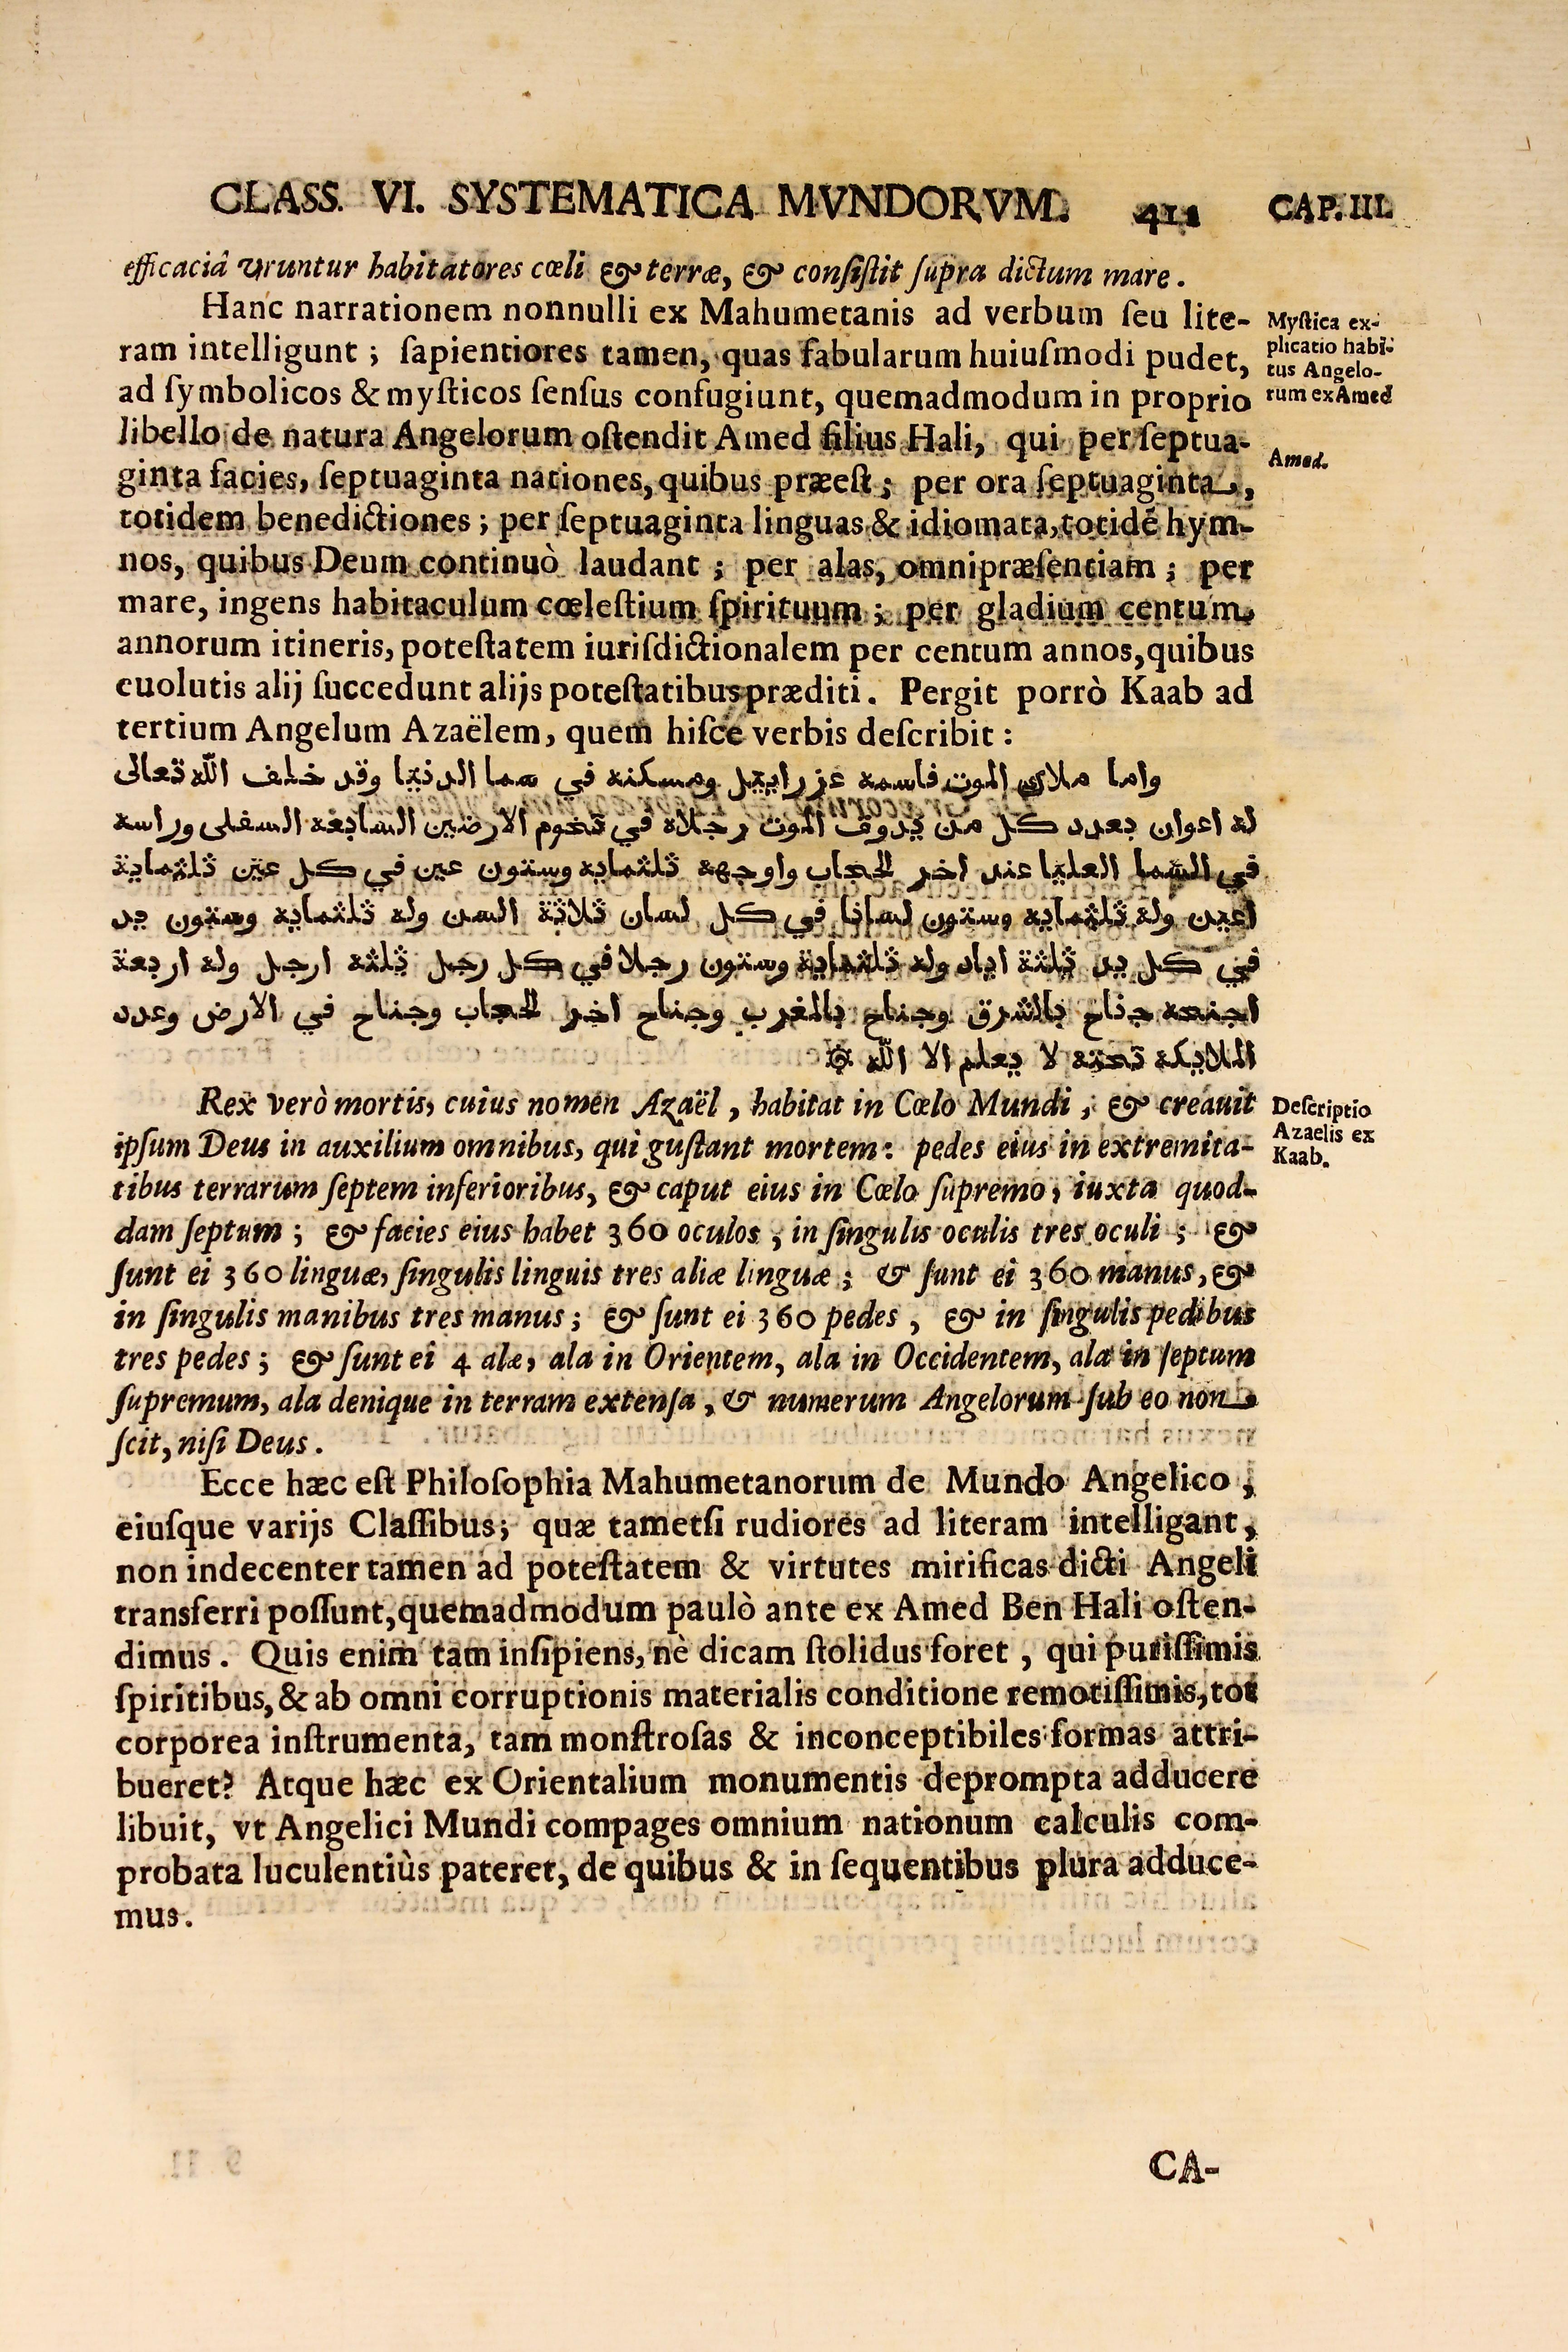 CLASS. VI. SYSTEMATICA MVNDORVM. 411 CAP. III.
efficaciâ vruntur habitatores cœli & terræ, & consiſtit ſupra dictum mare.
Hanc narrationem nonnulli ex Mahumetanis ad verbum ſeu lite-
ram intelligunt; ſapientiores tamen, quas fabularum huiuſmodi pudet,
ad ſymbolicos & myſticos ſenſus confugiunt, quemadmodum in proprio
libello de natura Angelorum oſtendit Amed filius Hali, qui per ſeptua-
ginta facies, ſeptuaginta nationes, quibus præeſt; per ora ſeptuaginta,
totidem benedictiones; per ſeptuaginta linguas & idiomata, totidē hym-
nos, quibus Deum continuò laudant; per alas, omnipræſentiam; per
mare, ingens habitaculum cœleſtium ſpirituum; per gladium centum
annorum itineris, poteſtatem iuriſdictionalem per centum annos, quibus
euolutis alij ſuccedunt alijs poteſtatibus præditi. Pergit porrò Kaab ad
tertium Angelum Azaëlem, quem hiſce verbis deſcribit:
Myſtica ex-
plicatio habi-
tus Angelo-
rum ex Amed
Amed.
واما ملاى الموت فاسمه عزراييل ومسكنه في سما الدنيا وقد خلف الله تعالى
له اعوان بعدد كل من يدوق الموت رجلاه في تخوم الارضين السابعة السفلى وراسه
في السما العليا عند اخر الحجاب واوجهه ثلثمايه وستون عين في كل عين ثلثماية
اعين وله ثلثمايه وستون لسانا في كل لسان ثلاثة السن وله ثلثمايه وستون يد
في كل يد ثلثة اياد وله ثلثماية وستون رجلا في كل رجل ثلثه ارجل وله اربعة
اجنحه جناح بالشرق وجناح بالمغرب وجناح اخر الحجاب وجناح في الارض وعدد
الملايكة تحته لا يعلم الا الله
Rex verò mortis, cuius nomen Azaël, habitat in Cœlo Mundi, & creauit
ipſum Deus in auxilium omnibus, qui guſtant mortem: pedes eius in extremita-
tibus terrarum ſeptem inferioribus, & caput eius in Cœlo ſupremo, iuxta quod-
dam ſeptum; & facies eius habet 360 oculos, in ſingulis oculis tres oculi; &
ſunt ei 360 linguæ, ſingulis linguis tres aliæ linguæ; & ſunt ei 360 manus, &
in ſingulis manibus tres manus; & ſunt ei 360 pedes, & in ſingulis pedibus
tres pedes; & ſunt ei 4 alæ, ala in Orientem, ala in Occidentem, ala in ſeptum
ſupremum, ala denique in terram extenſa, & numerum Angelorum ſub eo non
ſcit, niſi Deus.
Deſcriptio
Azaelis ex
Kaab.
Ecce hæc eſt Philoſophia Mahumetanorum de Mundo Angelico,
eiuſque varijs Claſſibus; quæ tametſi rudiores ad literam intelligant,
non indecenter tamen ad poteſtatem & virtutes mirificas dicti Angeli
transferri poſſunt, quemadmodum paulò ante ex Amed Ben Hali oſten-
dimus. Quis enim tam inſipiens, nè dicam ſtolidus foret, qui puriſſimis
ſpiritibus, & ab omni corruptionis materialis conditione remotiſſimis, tot
corporea inſtrumenta, tam monſtroſas & inconceptibiles formas attri-
bueret? Atque hæc ex Orientalium monumentis deprompta adducere
libuit, vt Angelici Mundi compages omnium nationum calculis com-
probata luculentiùs pateret, de quibus & in ſequentibus plura adduce-
mus.
CA-